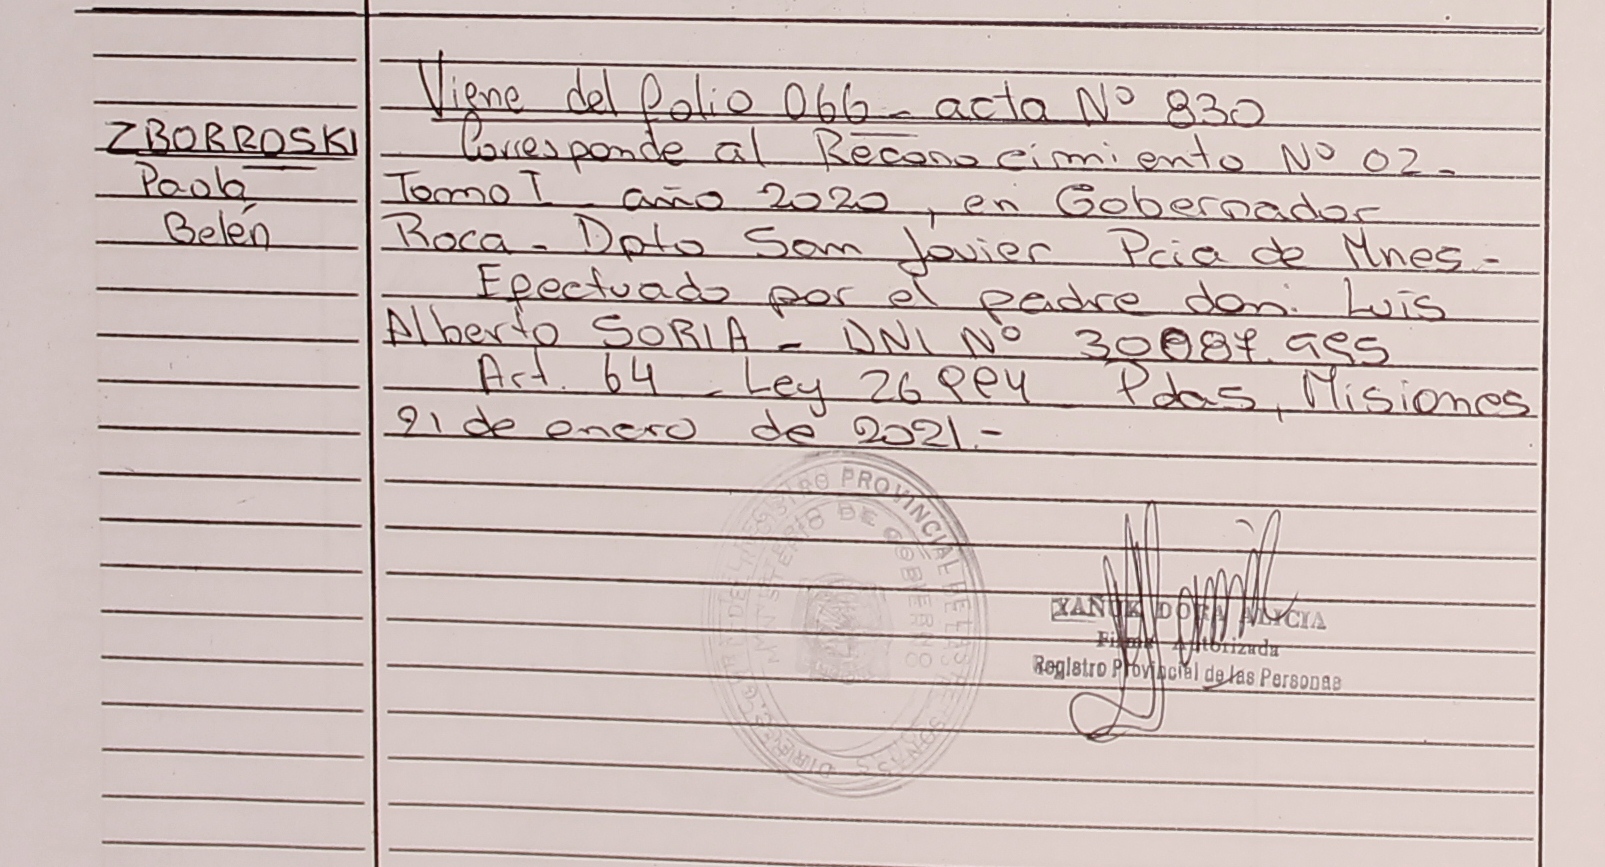 Viene del folio 066 - acta Nº 830
ZBORROSKI
Paola
Belén
Corresponde al Reconocimiento Nº 02-
Tomo I - año 2020, en Gobernador
Roca - Dpto San Javier Pcia de Mnes.-
Efectuado por el padre don: Luis
Alberto SORIA - DNI Nº 30887.955
Art. 64 - Ley 26994 Pdas, Misiones
21 de enero de 2021.-
REGISTRO PROVINCIAL DE LAS PERSONAS
MINISTERIO DE GOBIERNO
YANUK DORA ALICIA
Firma Autorizada
Registro Provincial de las Personas